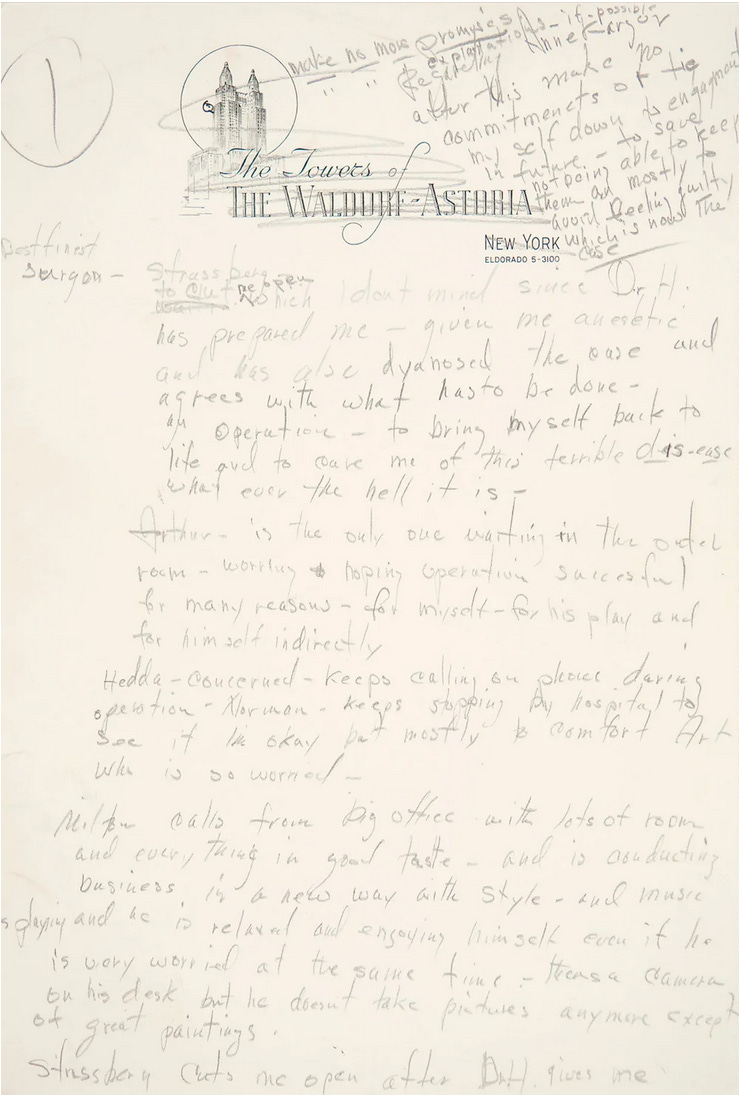 1
make no more promyses
" " " explaytions - if possible
Regarding Anne Karger
after this make no
commitments or tie
my self down to engagments
in future - to save
not being able to keep
them and mostly to
avoid feeling guilty
which is now the
case
The Towers of
THE WALDORF-ASTORIA
NEW YORK
ELDORADO 5-3100
Best finest
surgon -
Strassberg
to cut me open
which I dont mind since Dr. H.
has prepared me - given me anesetic
and has also dyanosed the case and
agrees with what has to be done -
an operation - to bring myself back to
life and to cure me of this terrible dis-ease
what ever the hell it is -
Arthur - is the only one waiting in the outer
room - worrying + hoping operation successful
for many reasons - for myself - for his play and
for himself indirectly
Hedda - concerned - keeps calling on phone during
operation - Norman - keeps stopping by hospital to
see if I'm okay but mostly to comfort Art
who is so worried -
Milton calls from big office with lots of room
and everything in good taste - and is conducting
business in a new way with style - and music
is playing and he is relaxed and engoying himself even if he
is very worried at the same time - theres a camera
on his desk but he doesn't take pictures anymore except
of great paintings.
Strassberg cuts me open after Dr. H. gives me